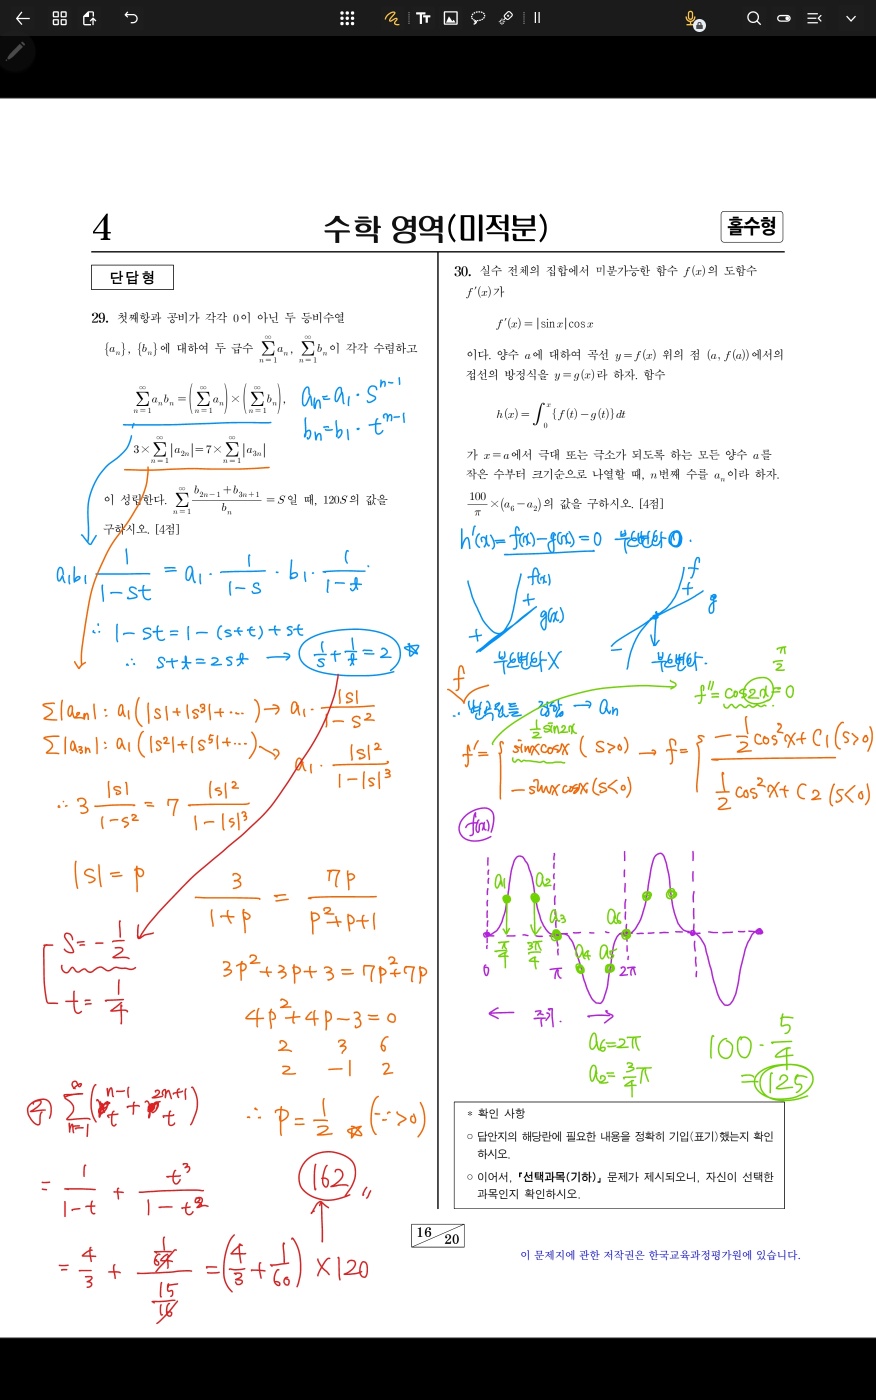 4
수학 영역(미적분)
홀수형
단답형
29. 첫째항과 공비가 각각 0이 아닌 두 등비수열
{aₙ}, {bₙ}에 대하여 두 급수 ∑_{n=1}^{∞} aₙ, ∑_{n=1}^{∞} bₙ이 각각 수렴하고
∑_{n=1}^{∞} aₙbₙ = (∑_{n=1}^{∞} aₙ) × (∑_{n=1}^{∞} bₙ),
3 × ∑_{n=1}^{∞} |a₂ₙ| = 7 × ∑_{n=1}^{∞} |a₃ₙ|
이 성립한다. ∑_{n=1}^{∞} (b₂ₙ₋₁ + b₃ₙ₊₁)/bₙ = S일 때, 120S의 값을
구하시오. [4점]
aₙ = a₁ · s^{n-1}
bₙ = b₁ · t^{n-1}
a₁b₁ 1/(1-st) = a₁ · 1/(1-s) · b₁ · 1/(1-t)
∴ 1-st = 1-(s+t)+st
∴ s+t = 2st → 1/s + 1/t = 2 ☆
∑|a₂ₙ| : a₁(|s|+|s³|+⋯) → a₁ · |s|/(1-s²)
∑|a₃ₙ| : a₁(|s²|+|s⁵|+⋯) → a₁ · |s|²/(1-|s|³)
∴ 3 |s|/(1-s²) = 7 |s|²/(1-|s|³)
|s| = p
3/(1+p) = 7p/(p²+p+1)
3p²+3p+3 = 7p²+7p
4p²+4p-3 = 0
2 3 6
2 -1 2
∴ p = 1/2 ☆ (∵ >0)
s = -1/2
t = 1/4
∑_{n=1}^{∞} (t^{n-1} + t^{2n+1})
= 1/(1-t) + t³/(1-t²)
= 4/3 + (1/64)/(15/16) = (4/3 + 1/60) × 120
162 〃
30. 실수 전체의 집합에서 미분가능한 함수 f(x)의 도함수
f′(x)가
f′(x) = |sin x|cos x
이다. 양수 a에 대하여 곡선 y=f(x) 위의 점 (a, f(a))에서의
접선의 방정식을 y=g(x)라 하자. 함수
h(x) = ∫₀ˣ {f(t)-g(t)}dt
가 x=a에서 극대 또는 극소가 되도록 하는 모든 양수 a를
작은 수부터 크기순으로 나열할 때, n번째 수를 aₙ이라 하자.
100/π × (a₆-a₂)의 값을 구하시오. [4점]
h′(x) = f(x)-g(x) = 0 부호변화 O.
f(x)
+
g(x)
+
부호변화 X
f
+
g
-
부호변화.
f
∴ 변곡점들 → aₙ
π/2
f″ = cos2x = 0
1/2 sin2x
f′ = { sinxcosx (s>0)
-sinxcosx (s<0)
→ f = { -1/2 cos²x + C₁ (s>0)
1/2 cos²x + C₂ (s<0)
f(x)
a₁ a₂ a₃ a₄ a₅ a₆
0 π/4 3π/4 π 2π
← 주기. →
a₆ = 2π
a₂ = 3/4 π
100 · 5/4
= 125
* 확인 사항
○ 답안지의 해당란에 필요한 내용을 정확히 기입(표기)했는지 확인
하시오.
○ 이어서, 「선택과목(기하)」 문제가 제시되오니, 자신이 선택한
과목인지 확인하시오.
16 20
이 문제지에 관한 저작권은 한국교육과정평가원에 있습니다.